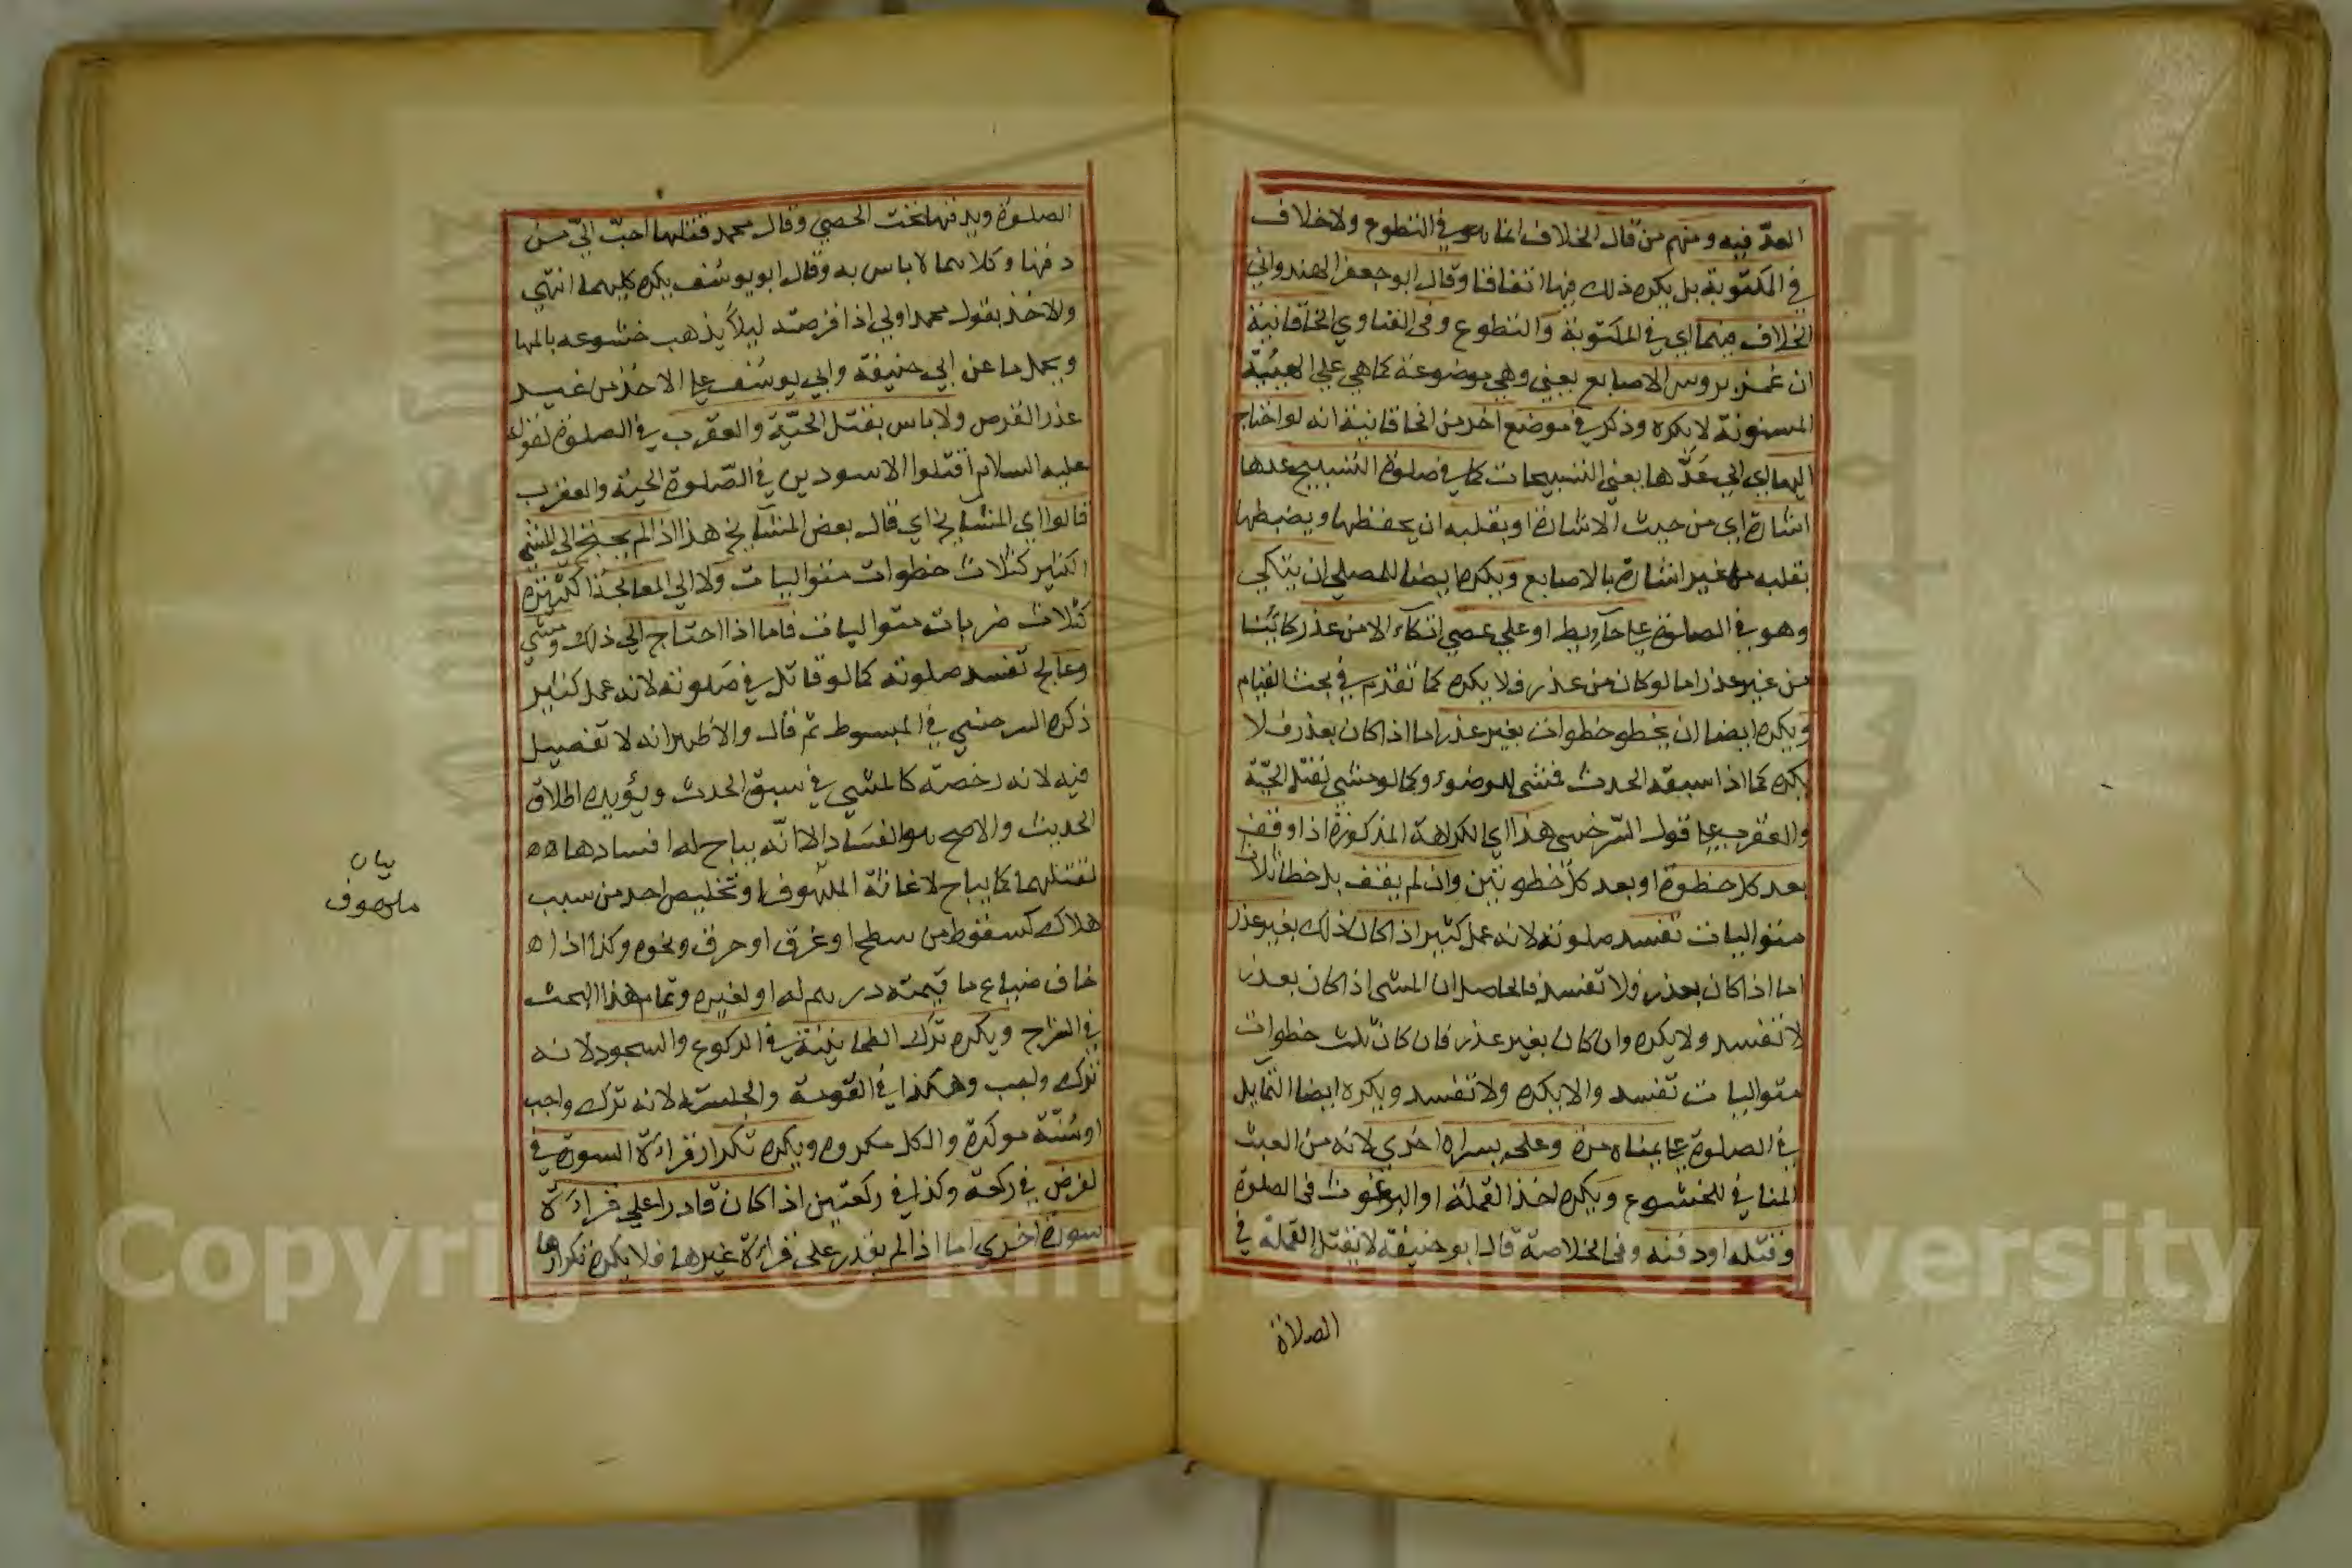 العدّ فيه ومنهم من قال الخلاف انما هو في التطوع ولاخلاف
في المكتوبة بل يكره ذلك فيها اتفاقا وقال ابو جعفر الهندواني
الخلاف فيهما اي في المكتوبة والتطوع وفي الفتاوي الخاقانية
ان غمز بروس الاصابع يعني وهي موضوعة كما هي علي الهيئة
المسنونة لايكره وذكر في موضع اخر من الخاقانية انه لو احتاج
اليها اي الي عَدّها يعني التسبيحات كما في صلوة التسبيح عدها
اشارة اي من حيث الاشارة او بقلبه ان يحفظها ويضبطها
بقلبه من غير اشارة بالاصابع ويكره ايضا للمصلي ان يتكي
وهو في الصلوة علي حآويط او علي عصي اتكآء الا من عذر كائنا
من غير عذر اما لو كان من عذر فلا يكره كما تقدم في بحث القيام
ويكره ايضا ان يخطو خطوات بغير عذر اما اذا كان بعذر فلا
يكره كما اذا سبقه الحدث فمشي للوضوء وكما لو مشي لقتل الحيّة
والعقرب علي قول السّرخسي هذا اي الكراهة المذكورة اذا وقف
بعد كل خطوة او بعد كل خطوتين وان لم يقف بل خطا ثلاث
متواليات تفسد صلوته لانه عمل كثير اذا كان ذلك بغير عذر
اما اذا كان بعذر فلا تفسد فالحاصل ان المشي اذا كان بعذر
لا تفسد ولا يكره وان كان بغير عذر فان كان ثلث خطوات
متواليات تفسد والا يكره ولا تفسد ويكره ايضا التمايل
في الصلوة علي يمناه مرة وعلي يسراه اخري لانه من العبث
المنافي للخشوع ويكره اخذ القملة او البرغوث في الصلوة
وقتله او دفنه وفي الخلاصة قال ابو حنيفة لا يقتل القملة في
الصلاة
الصلوة ويدفنها تحت الحصي وقال محمد قتلها احبّ اليّ من
دفنها وكلاهما لاباس به وقال ابويوسُف يكره كليهما انتهي
والاخذ بقول محمد اولي اذا قرصته ليلا يذهب خشوعه بالمها
ويحمل ما عن ابي حنيفة وابي يوسُف علي الاخذ من غير
عذر القرص ولاباس بقتل الحيّة والعقرب في الصلوة لقوله
عليه السلام اقتلوا الاسودين في الصّلوة الحية والعقرب
قالوا اي المشايخ اي قال بعض المشآيخ هذا اذا لم يحتج الي المشي
الكثير كثلاث خطوات متواليات ولا الي المعالجة الكثيرة
كثلاث ضربات متواليات فاما اذا احتاج الي ذلك ومشي
وعالج تفسد صلوته كما لو قاتل في صَلوته لانه عمل كثير
ذكره السرخسي في المبسوط ثم قال والاظهر انه لا تفصيل
فيه لانه رخصة كالمشي في سبق الحدث ويؤيده اطلاق
الحديث والاصح هو الفسَاد الا انّه يباح له افسادها ه ه
لقتلهما كما يباح لاغاثة الملهُوف او تخليص احد من سبب
هلاك كسقوط من سطح او غرق او حرق ونحوه وكذا اذا ه
خاف ضياع ما قيمته درهم له او لغيره وتمام هذا البحث
في الشراح ويكره ترك الطمانينة في الركوع والسجود لانه
ترك واجب وهكذا في القومة والجلسة لانه ترك واجب
او سُنّة موكدة والكل مكروه ويكره تكرار قراءة السورة في
الفرض في ركعة وكذا في ركعتين اذا كان قادرا علي قراءة
سورة اخري اما اذا لم يقدر علي قراءة غيرها فلا يكره تكرارها
بيان
ملهوف
Copyright © King Saud University